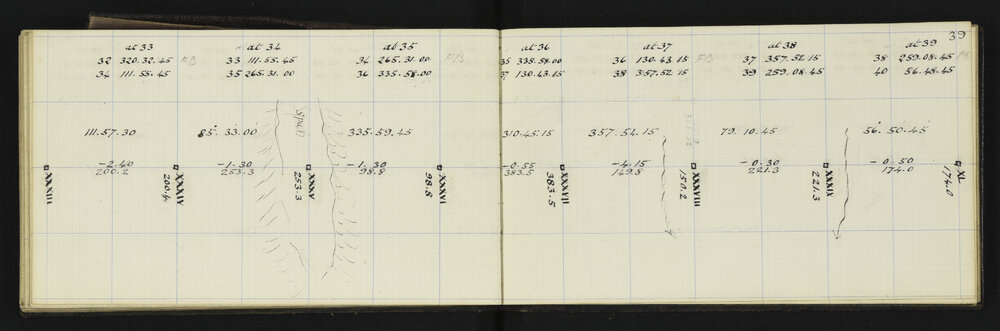 39
at 33 at 34 at 35 at 36 at 37 at 38 at 39
32 320.32.45 FB 33 111.55.45 34 265.31.00 FB 35 335.58.00 36 130.43.15 FB 37 357.52.15 38 259.08.45 FB
34 111.55.45 35 265.31.00 36 335.58.00 37 130.43.15 38 357.52.15 39 259.08.45 40 56.48.45
Spur
111.57.30 85.33.00 335.59.45 310.45.15 357.54.15 79.10.45 56.50.45
-2.40 -1.30 -1.30 -0.55 -4.15 -0.30 -0.50
200.2 253.3 98.8 383.5 149.8 221.3 174.0
XXXIII XXXIV XXXV XXXVI XXXVII XXXVIII XXXIX XL
200.4 253.3 98.8 383.5 150.2 221.3 174.0